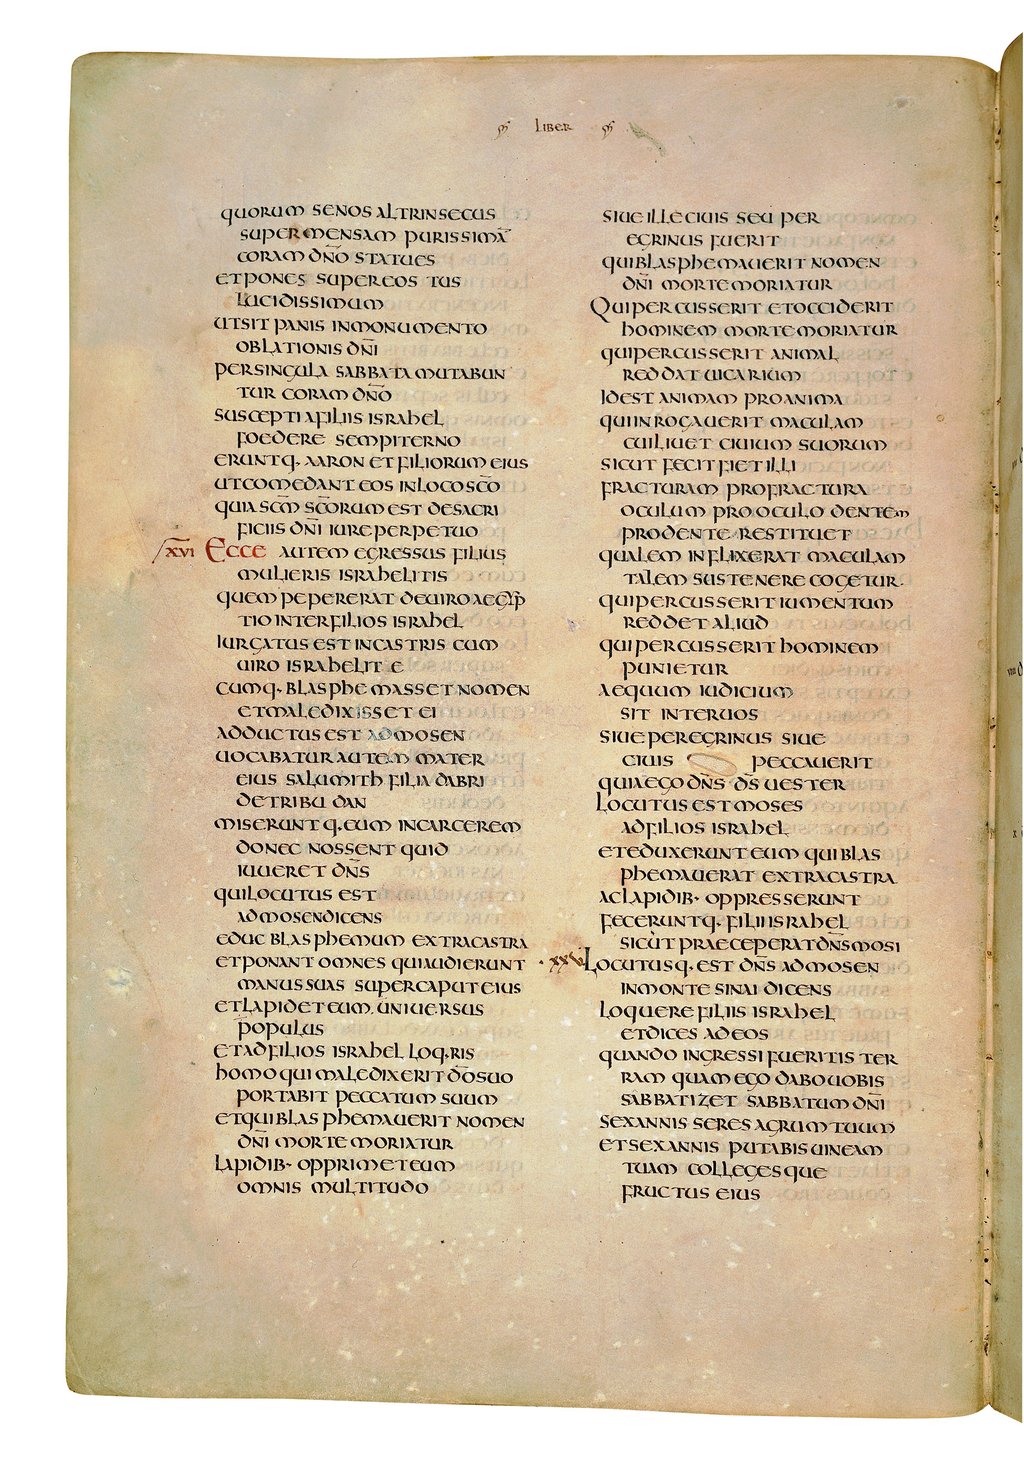 LIBER
QUORUM SENOS ALTRINSECUS
SUPER MENSAM PURISSIMĀ
CORAM DN̄O STATUES
ET PONES SUPER EOS TUS
LUCIDISSIMUM
UT SIT PANIS IN MONUMENTO
OBLATIONIS DN̄I
PER SINGULA SABBATA MUTABUN
TUR CORAM DN̄O
SUSCEPTI A FILIIS ISRAHEL
FOEDERE SEMPITERNO
ERUNTQ· AARON ET FILIORUM EIUS
UT COMEDANT EOS IN LOCO SC̄O
QUIA SC̄M SC̄ORUM EST DE SACRI
FICIIS DN̄I IURE PERPETUO
X̄VI ECCE AUTEM EGRESSUS FILIUS
MULIERIS ISRAHELITIS
QUEM PEPERERAT DE UIRO AEGYP
TIO INTER FILIOS ISRAHEL
IURGATUS EST IN CASTRIS CUM
UIRO ISRAHELITE
CUMQ· BLASPHEMASSET NOMEN
ET MALEDIXISSET EI
ADDUCTUS EST AD MOSEN
UOCABATUR AUTEM MATER
EIUS SALUMITH FILIA DABRI
DE TRIBU DAN
MISERUNTQ· EUM IN CARCEREM
DONEC NOSSENT QUID
IUUERET DN̄S
QUI LOCUTUS EST
AD MOSEN DICENS
EDUC BLASPHEMUM EXTRA CASTRA
ET PONANT OMNES QUI AUDIERUNT
MANUS SUAS SUPER CAPUT EIUS
ET LAPIDET EUM UNIUERSUS
POPULUS
ET AD FILIOS ISRAHEL LOQ·RIS
HOMO QUI MALEDIXERIT DŌ SUO
PORTABIT PECCATUM SUUM
ET QUI BLASPHEMAUERIT NOMEN
DN̄I MORTE MORIATUR
LAPIDIB· OPPRIMET EUM
OMNIS MULTITUDO
SIUE ILLE CIUIS SEU PER
EGRINUS FUERIT
QUI BLASPHEMAUERIT NOMEN
DN̄I MORTE MORIATUR
QUI PERCUSSERIT ET OCCIDERIT
HOMINEM MORTE MORIATUR
QUI PERCUSSERIT ANIMAL
REDDAT UICARIUM
ID EST ANIMAM PRO ANIMA
QUI INROGAUERIT MACULAM
CUILIUET CIUIUM SUORUM
SICUT FECIT FIET ILLI
FRACTURAM PRO FRACTURA
OCULUM PRO OCULO DENTEM
PRO DENTE RESTITUET
QUALEM INFLIXERAT MACULAM
TALEM SUSTENERE COGETUR·
QUI PERCUSSERIT IUMENTUM
REDDET ALIUD
QUI PERCUSSERIT HOMINEM
PUNIETUR
AEQUUM IUDICIUM
SIT INTER UOS
SIUE PEREGRINUS SIUE
CIUIS PECCAUERIT
QUIA EGO DN̄S DS̄ UESTER
LOCUTUS EST MOSES
AD FILIOS ISRAHEL
ET EDUXERUNT EUM QUI BLAS
PHEMAUERAT EXTRA CASTRA
AC LAPIDIB· OPPRESSERUNT
FECERUNTQ· FILII ISRAHEL
SICUT PRAECEPERAT DN̄S MOSI
LOCUTUSQ· EST DN̄S AD MOSEN
IN MONTE SINAI DICENS
LOQUERE FILIIS ISRAHEL
ET DICES AD EOS
QUANDO INGRESSI FUERITIS TER
RAM QUAM EGO DABO UOBIS
SABBATIZET SABBATUM DN̄I
SEX ANNIS SERES AGRUM TUUM
ET SEX ANNIS PUTABIS UINEAM
TUAM COLLEGESQUE
FRUCTUS EIUS